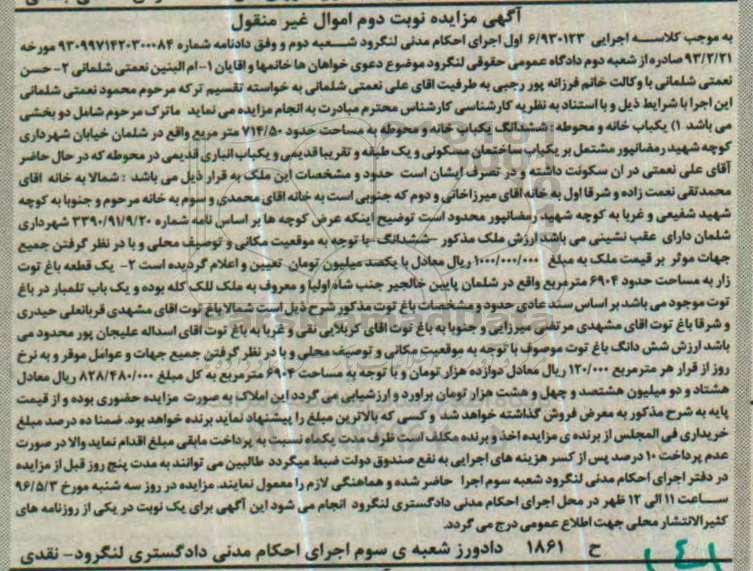 آگهی مزایده نوبت دوم اموال غیر منقول
به موجب کلاسه اجرایی ۶/۹۳۰۱۲۳ اول اجرای احکام مدنی لنگرود شعبه دوم و وفق دادنامه شماره ۹۳۰۹۹۷۱۴۲۰۳۰۰۰۸۴ مورخه
۹۳/۲/۲۱ صادره از شعبه دوم دادگاه عمومی حقوقی لنگرود موضوع دعوی خواهان ها خانمها و اقایان ۱-ام البنین نعمتی شلمانی ۲- حسن
نعمتی شلمانی با وکالت خانم فرزانه پور رجبی به طرفیت اقای علی نعمتی شلمانی به خواسته تقسیم ترکه مرحوم محمود نعمتی شلمانی
این اجرا با شرایط ذیل و با استناد به نظریه کارشناسی کارشناس محترم مبادرت به انجام مزایده می نماید ماترک مرحوم شامل دو بخشی
می باشد ۱) یکباب خانه و محوطه : ششدانگ یکباب خانه و محوطه به مساحت حدود ۷۱۴/۵۰ متر مربع واقع در شلمان خیابان شهرداری
کوچه شهید رمضانپور مشتمل بر یکباب ساختمان مسکونی و یک طبقه و تقریبا قدیمی و یکباب انباری قدیمی در محوطه که در حال حاضر
آقای علی نعمتی در ان سکونت داشته و در تصرف ایشان است حدود و مشخصات این ملک به قرار ذیل می باشد : شمالا به خانه اقای
محمدتقی نعمت زاده و شرقا اول به خانه اقای میرزاخانی و دوم که جنوبی است به خانه اقای محمدی و سوم به خانه مرحوم و جنوبا به کوچه
شهید شفیعی و غربا به کوچه شهید رمضانپور محدود است توضیح اینکه عرض کوچه ها بر اساس نامه شماره ۳۳۹۰/۹۱/۹/۲۰ شهرداری
شلمان دارای عقب نشینی می باشد ارزش ملک مذکور -ششدانگ- با توجه به موقعیت مکانی و توصیف محلی و با در نظر گرفتن جمیع
جهات موثر بر قیمت ملک به مبلغ ۱۰۰۰/۰۰۰/۰۰۰ ریال معادل با یکصد میلیون تومان تعیین و اعلام گردیده است ۲- یک قطعه باغ توت
زار به مساحت حدود ۶۹۰۴ مترمربع واقع در شلمان پایین خالجیر جنب شاه اولیا و معروف به ملک للک کله بوده و یک باب تلمبار در باغ
توت موجود می باشد بر اساس سند عادی حدود و مشخصات باغ توت مذکور شرح ذیل است شمالا باغ توت اقای مشهدی قربانعلی حیدری
و شرقا باغ توت اقای مشهدی مرتضی میرزایی و جنوبا به باغ توت اقای کربلایی نقی و غربا به باغ توت اقای اسداله علیجان پور محدود می
باشد ارزش شش دانگ باغ توت موصوف با توجه به موقعیت مکانی و توصیف محلی و با در نظر گرفتن جمیع جهات و عوامل موقر و به نرخ
روز از قرار هر مترمربع ۱۲۰/۰۰۰ ریال معادل دوازده هزار تومان و با توجه به مساحت ۶۹۰۴ مترمربع به کل مبلغ ۸۲۸/۴۸۰/۰۰۰ ریال معادل
هشتاد و دو میلیون هشتصد و چهل و هشت هزار تومان براورد و ارزشیابی می گردد این املاک به صورت مزایده حضوری بوده و از قیمت
پایه به شرح مذکور به معرض فروش گذاشته خواهد شد و کسی که بالاترین مبلغ را پیشنهاد نماید برنده خواهد بود. ضمنا ده درصد مبلغ
خریداری فی المجلس از برنده ی مزایده اخذ و برنده مکلف است ظرف مدت یکماه نسبت به پرداخت مابقی مبلغ اقدام نماید والا در صورت
عدم پرداخت ۱۰ درصد پس از کسر هزینه های اجرایی به نفع صندوق دولت ضبط میگردد طالبین می توانند به مدت پنج روز قبل از مزایده
در دفتر اجرای احکام مدنی لنگرود شعبه سوم اجرا حاضر شده و هماهنگی لازم را معمول نمایند. مزایده در روز سه شنبه مورخ ۹۶/۵/۳
ساعت ۱۱ الی ۱۲ ظهر در محل اجرای احکام مدنی دادگستری لنگرود انجام می شود این آگهی برای یک نوبت در یکی از روزنامه های
کثیرالانتشار محلی جهت اطلاع عمومی درج می گردد.
ح ۱۸۶۱ دادورز شعبه ی سوم اجرای احکام مدنی دادگستری لنگرود- نقدی